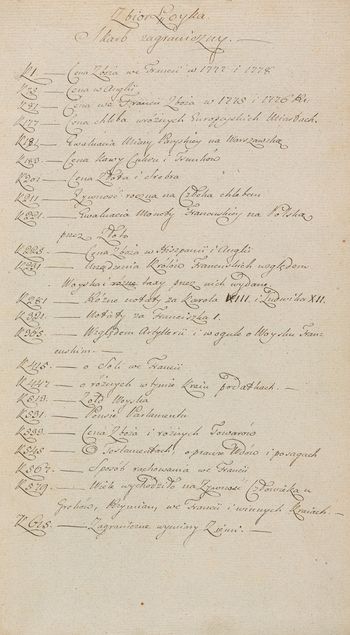 Zbior Łoyka.
Skarb zagraniczny. —
K1 — Cena Zboża we Francii w 1777 i 1778
Cena w Anglii
Cena we Francii Zboża w 1775 i 1776 Ru
K177 — Cena chleba w różnych Europeyskich Miastach.
K181 — Ewaluacia Miary Paryskiey na Warszawską
K189 — Cena Kawy Cukru i Trunków
Cena Złota i Srebra
K211 — Żywność roczna na Człeka chlebem
K221 — Ewaluacia Monety Francuskiey na Polską
przez Złoto
K223 — Cena Zboża w Hiszpanii i Anglii
K231 — Urządzenia Królów Francuskich względem
Woyska i taxy przez nich wydane
K281 — Różne notaty za Karola VIII i Ludwika XII.
K321 — Notaty za Franciszka I.
K355 — Względem Artyllerii i w ogule o Woysku Fran-
cuskim —
K415 — o Soli we Francii
K447 — o różnych w tymże Kraiu podatkach. —
K513 — Żołd Woyska
K531 — Pensie Parlamentu
K533 — Cena Zboża i różnych Towarów
K545 — O Testamentach, oprawie Wdów i posagach
K567 — Sposób rachowania we Francii
K579 — Wiele wychodziło na Żywność Człowieka u
Greków, Rzymian, we Francii i w innych Kraiach. —
K615 — Zagraniczne wymiary Ziemi. —